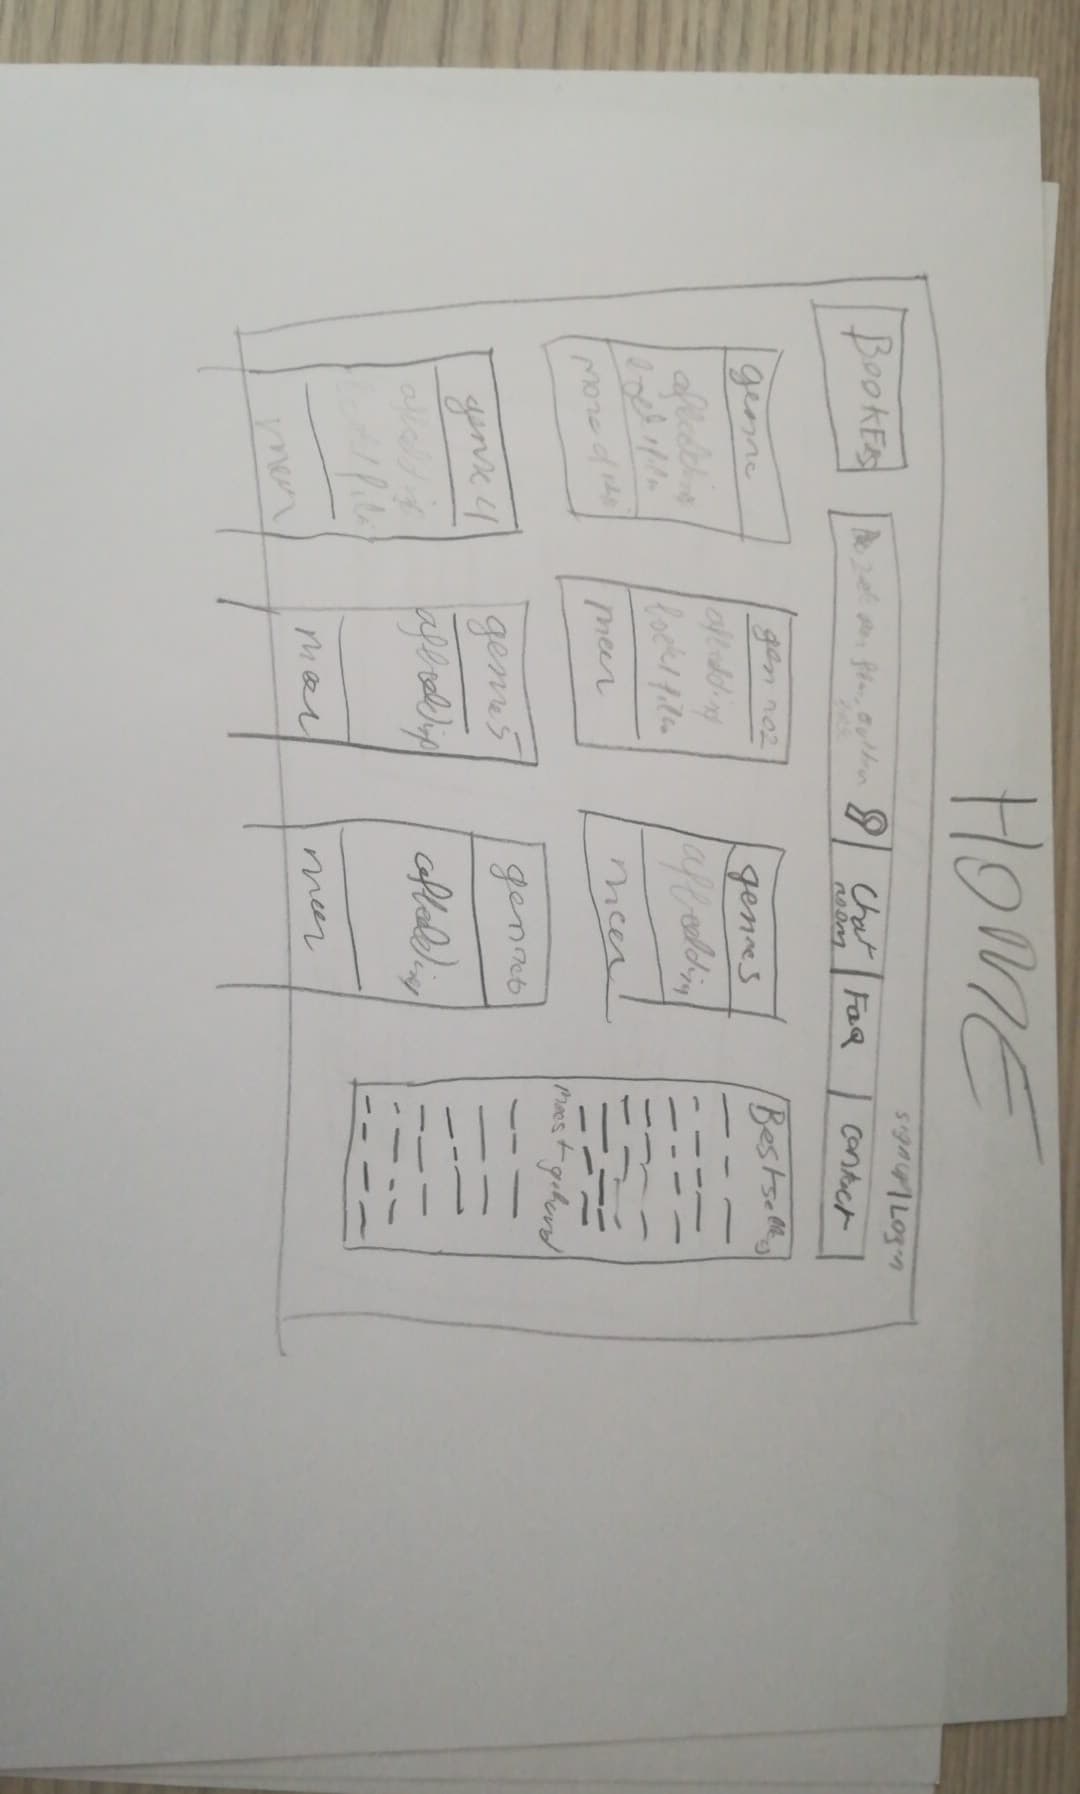 HOME
signup/Login
BOOKErs
Chat room
FaQ
contact
genre
afbeelding
boek/film
genre2
afbeelding
boek/film
meer
genre3
afbeelding
meer
Bestsellers
genre 4
afbeelding
boek/film
meer
genre5
afbeelding
meer
genre6
afbeelding
meer